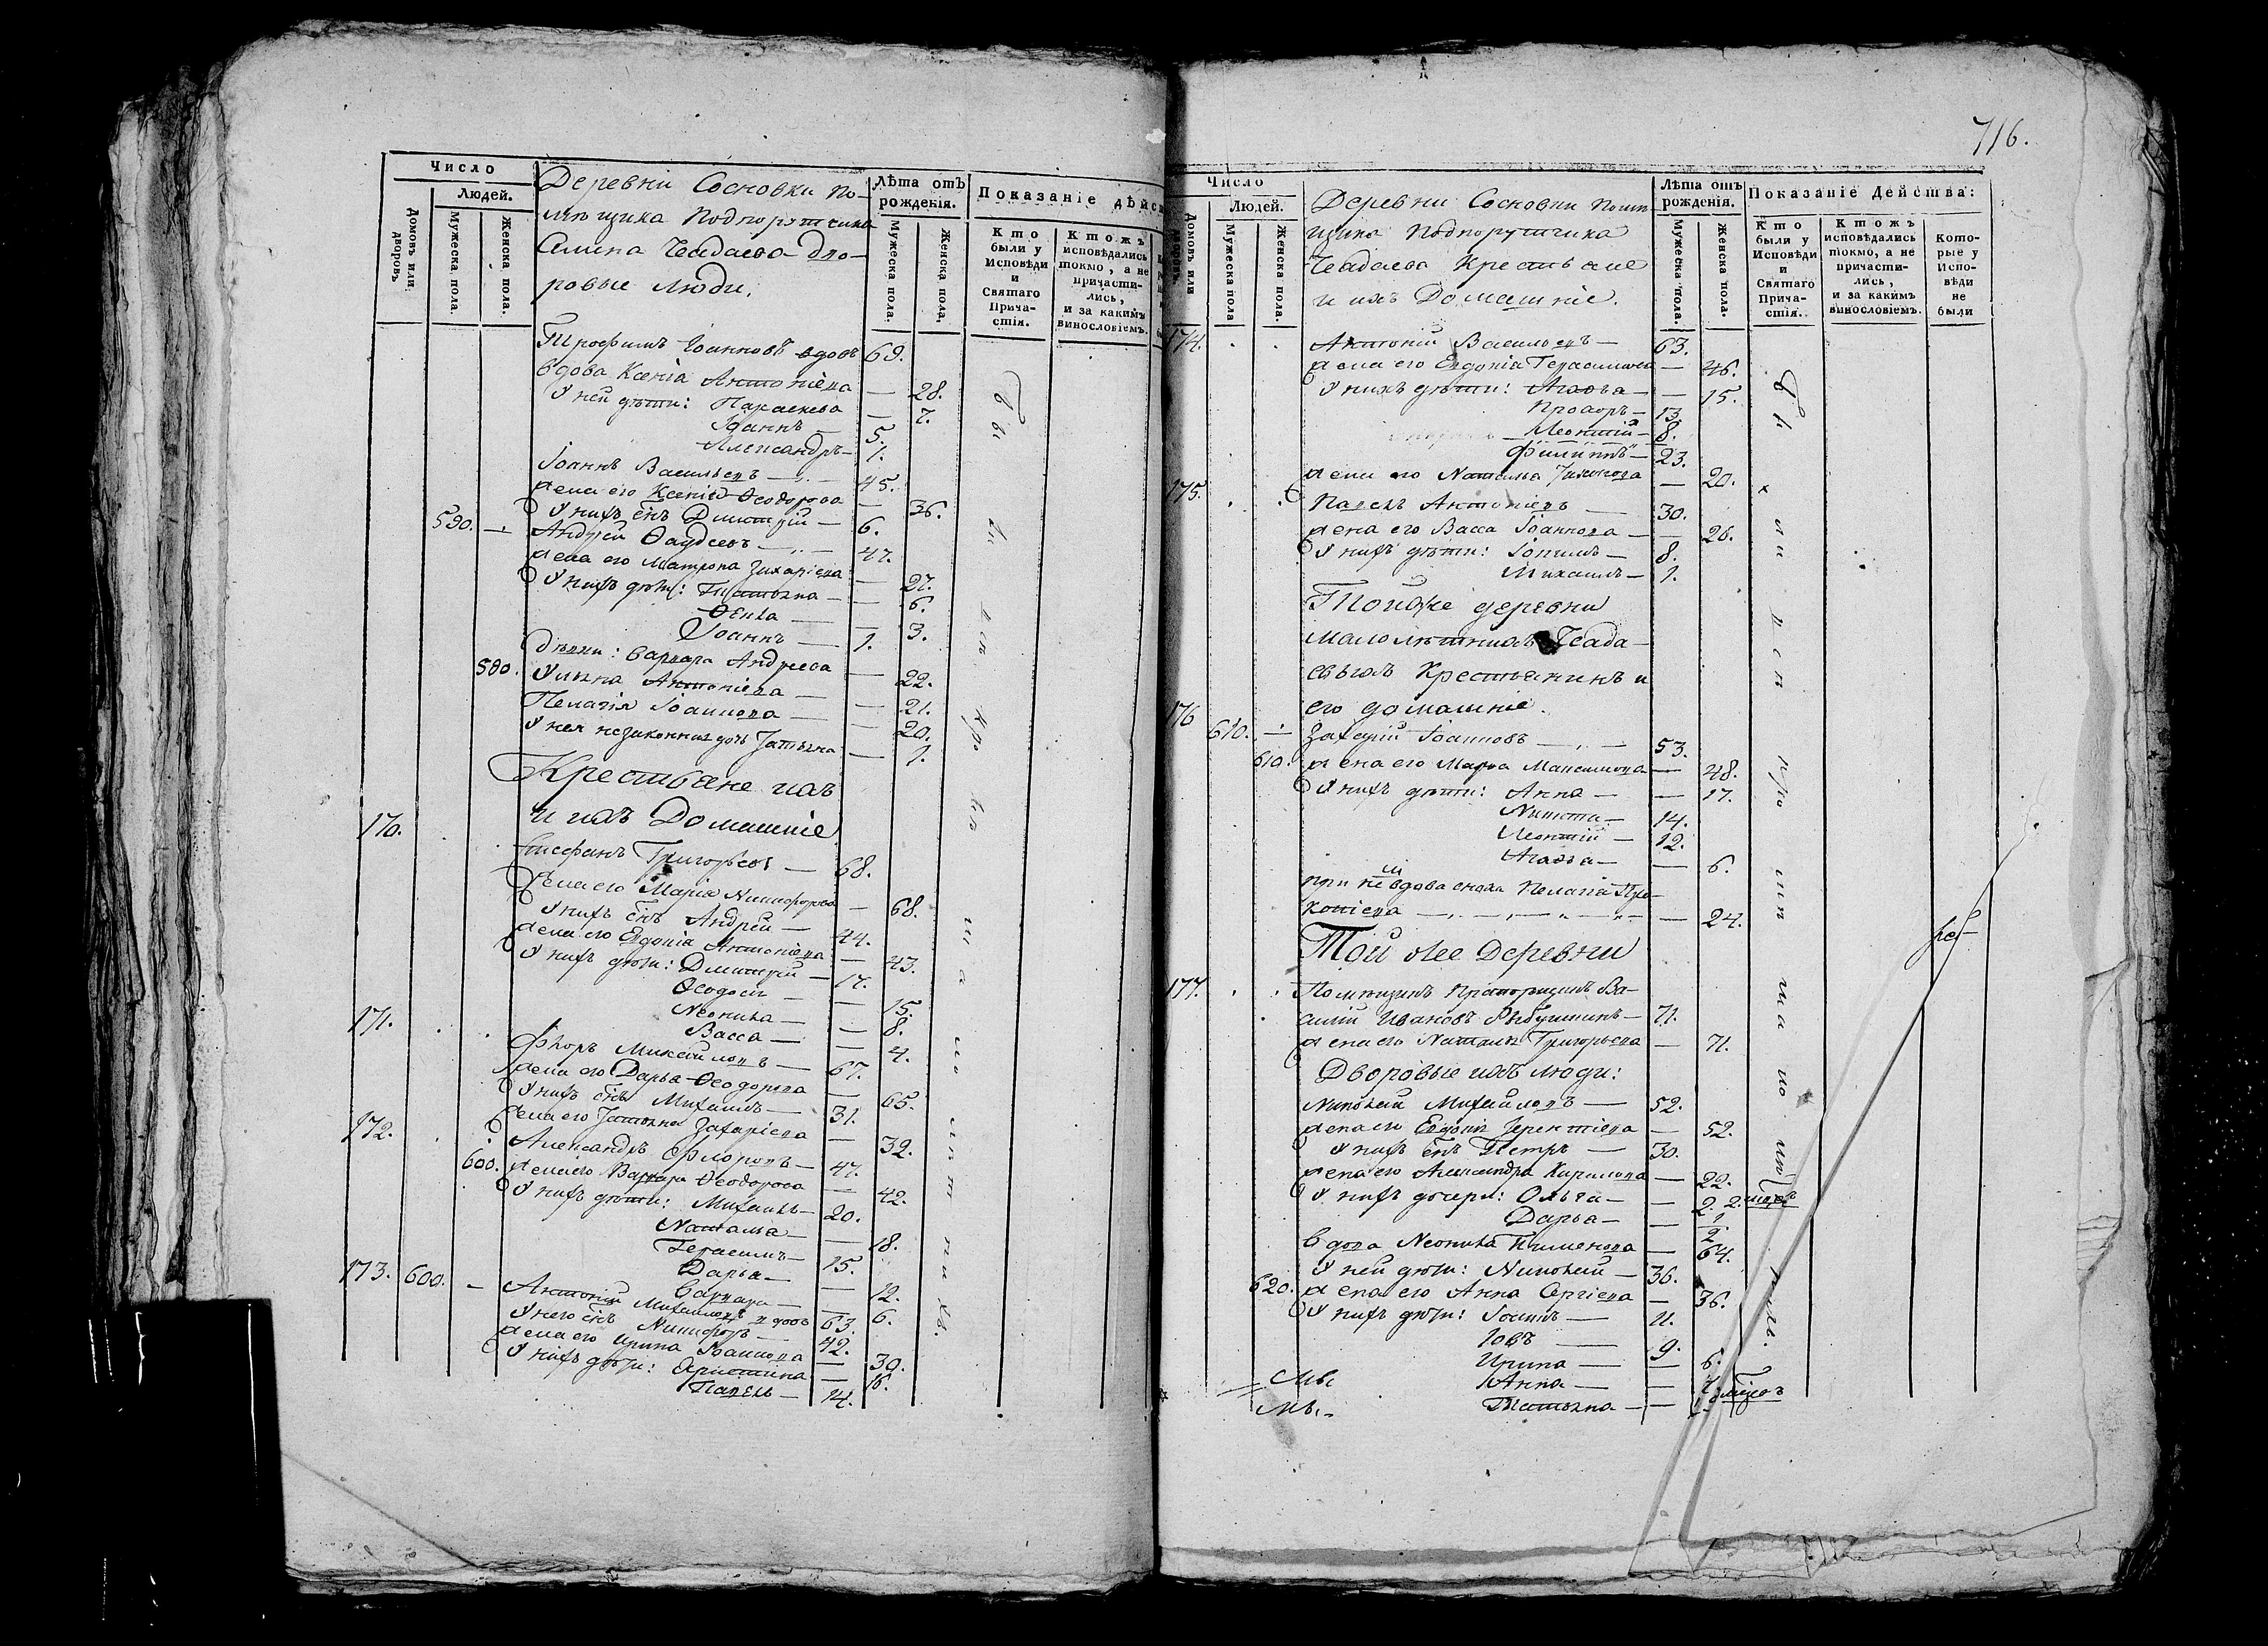 Число
Людей.
Домовъ или дворовъ
Мужеска пола.
Женска пола.
Деревни Сосновки по-
мѣщика Подпорутчика
Чеадаева дво-
ровые люди.
Лѣта отъ рожденія.
Мужеска пола.
Женска пола.
Показаніе дѣйс
Кто были у Исповѣди и Святаго Прича-стія.
Ктожъ исповѣдались токмо, а не причасти-лись, и за какимъ винословіемъ.
Трофимъ Іоанновъ вдовъ 69.
вдова Ксенія Антоніева — 28.
У ней дѣти: Параскева — 7.
Іоаннъ — 5.
Александръ — 1.
Іоаннъ Васильевъ — 45.
жена его Ксенія Ѳеодорова — 36.
У нихъ снъ Димитрій — 6.
590. — Андрей Ѳаддеевъ — 47.
жена его Матрона Захаріева — 27.
У нихъ дѣти: Татьяна — 6.
Ѳекла — 3.
Іоаннъ — 1.
Дѣвки: Варвара Андреева — 22.
590. Ульяна Антоніева — 21.
Пелагія Іоаннова — 20.
У нея незаконная дочь Татьяна — 1.
Крестьяне ихъ
и ихъ Домашніе
170. Стефанъ Григорьевъ — 68.
жена его Марія Никифорова — 68.
У нихъ снъ Андрей — 44.
жена его Евдокія Антоніева — 43.
У нихъ дѣти: Димитрій — 17.
Ѳеодосія — 15.
Неонила — 8.
Васса — 4.
171. Флоръ Михайловъ — 67.
жена его Дарья Ѳеодорова — 65.
У нихъ снъ Михаилъ — 31.
жена его Татьяна Захаріева — 32.
172. Александръ Флоровъ — 47.
600. жена его Варвара Ѳеодорова — 42.
У нихъ дѣти: Михаилъ — 20.
Наталья — 18.
Герасимъ — 15.
Дарья — 12.
Варвара — 6.
173. 600. — Антоній Михайловъ вдовъ 63.
У него снъ Никифоръ — 42.
жена его Ирина Іоаннова — 39.
У нихъ дѣти: Христина — 16.
Павелъ — 14.
716.
Число
Людей.
Домовъ или дворовъ
Мужеска пола.
Женска пола.
Деревни Сосновки помѣ
щика Подпорутчика
Чеадаева Крестьяне
и ихъ Домашніе.
Лѣта отъ рожденія.
Мужеска пола.
Женска пола.
Показаніе Действа:
Кто были у Исповѣди и Святаго Прича-стія.
Ктожъ исповѣдались токмо, а не причасти-лись, и за какимъ винословіемъ.
Кото-рые у Испо-вѣди не были
174. Антоній Васильевъ — 63.
жена его Евдокія Герасимова — 46.
У нихъ дѣти: Агаѳья — 15.
Прохоръ — 13.
Леонтій — 8.
Филиппъ — 23.
жена его Наталья — 20.
175. Павелъ Антоніевъ — 30.
жена его Васса Іоаннова — 26.
У нихъ дѣти: Іоакимъ — 8.
Михаилъ — 1.
Тойже деревни
малолѣтнихъ Чеада-
евыхъ Крестьянинъ и
его домашніе.
176 610. — Захарій Іоанновъ — 53.
610. жена его Марѳа Максимова — 48.
У нихъ дѣти: Анна — 17.
Никита — 14.
Леонтій — 12.
Агаѳья — 6.
при ней вдова сноха Пелагія Про-
копіева — 24.
Той же Деревни
177. Помѣщикъ Прапорщикъ Ва-
силій Ивановъ — 71.
жена его Наталья Григорьева — 71.
Дворовые ихъ люди:
Николай Михайловъ — 52.
жена его Евдокія Терентіева — 52.
У нихъ снъ Петръ — 30.
жена его Александра Кирилова — 22.
У нихъ дочери: Ольга — 2.
Дарья — 1/2
вдова Неонила Пименова — 64.
У ней дѣти: Николай — 36.
620. жена его Анна Сергіева — 36.
У нихъ дѣти: Іоаннъ — 11.
Іовъ — 9.
Ирина — 6.
Анна —
Татьяна —